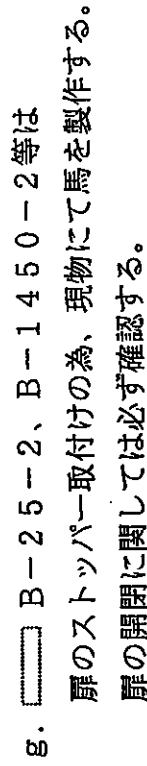 g. B－25－2、B－1450－2等は
扉のストッパー取付けの為、現物にて馬を製作する。
扉の開閉に関しては必ず確認する。